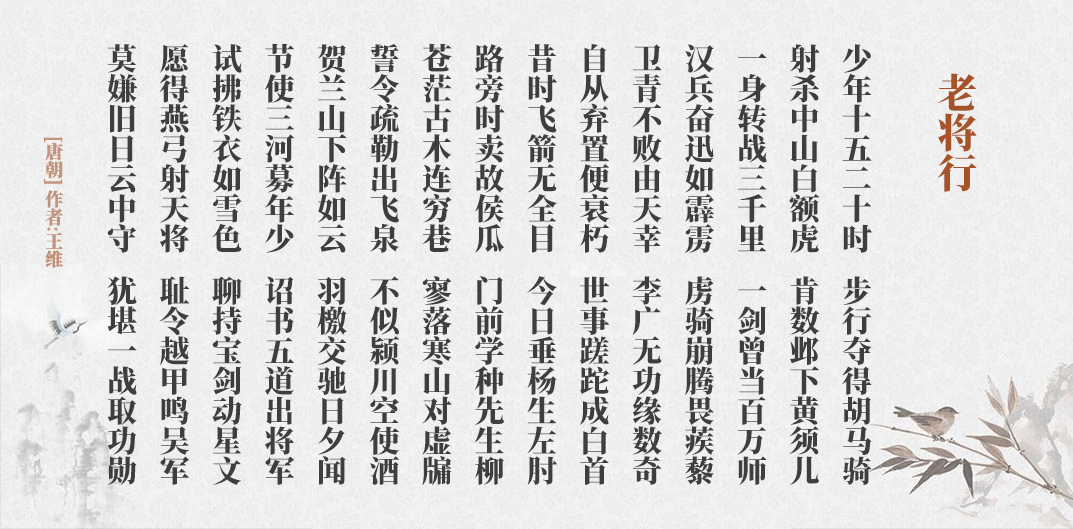 老将行
少年十五二十时 步行夺得胡马骑
射杀中山白额虎 肯数邺下黄须儿
一身转战三千里 一剑曾当百万师
汉兵奋迅如霹雳 虏骑崩腾畏蒺藜
卫青不败由天幸 李广无功缘数奇
自从弃置便衰朽 世事蹉跎成白首
昔时飞箭无全目 今日垂杨生左肘
路旁时卖故侯瓜 门前学种先生柳
苍茫古木连穷巷 寥落寒山对虚牖
誓令疏勒出飞泉 不似颍川空使酒
贺兰山下阵如云 羽檄交驰日夕闻
节使三河募年少 诏书五道出将军
试拂铁衣如雪色 聊持宝剑动星文
愿得燕弓射天将 耻令越甲鸣吴军
莫嫌旧日云中守 犹堪一战取功勋
[唐朝] 作者:王维